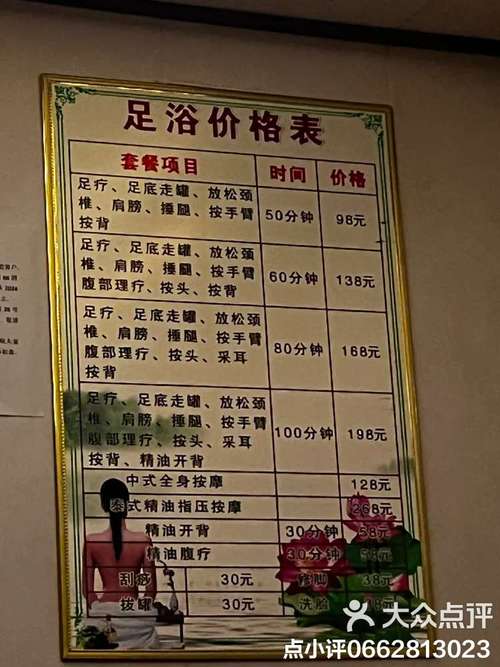 足浴价格表
套餐项目 时间 价格
足疗、足底走罐、放松颈
椎、肩膀、捶腿、按手臂
按背
50分钟 98元
足疗、足底走罐、放松颈
椎、肩膀、捶腿、按手臂
腹部理疗、按头、按背
60分钟 138元
足疗、足底走罐、放松颈
椎、肩膀、捶腿、按手臂
腹部理疗、按头、采耳
按背
80分钟 168元
足疗、足底走罐、放松颈
椎、肩膀、捶腿、按手臂
腹部理疗、按头、采耳
按背、精油开背
100分钟 198元
中式全身按摩 128元
泰式精油指压按摩 268元
精油开背 30分钟 58元
精油腹疗 30分钟 58元
刮痧 30元 修脚 38元
拔罐 30元 洗脸
大众点评
点小评0662813023